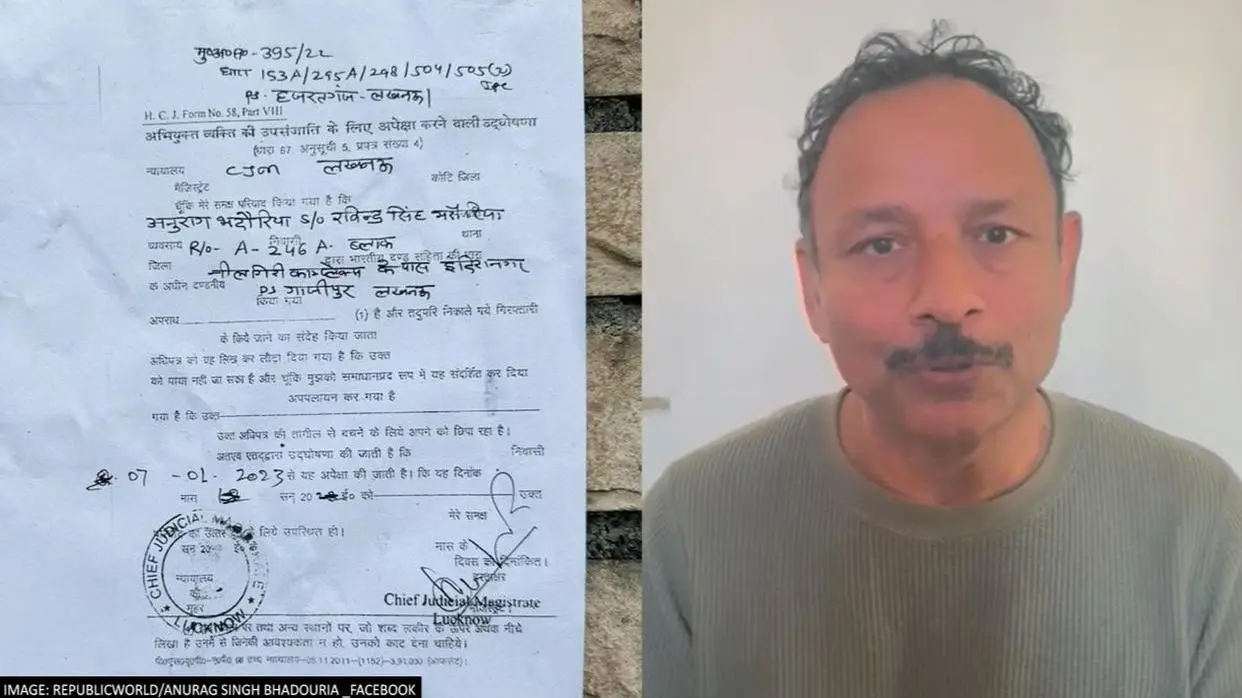 मु०अ०सं० - 395/22
धारा 153A/295A/298/504/505(2) IPC
PS- हजरतगंज - लखनऊ
H. C. J. Form No. 58, Part VIII
अभियुक्त व्यक्ति की उपसंगाति के लिए अपेक्षा करने वाली उद्घोषणा
(धारा 87 अनुसूची 5, प्रपत्र संख्या 4)
न्यायालय CJM लखनऊ कोटि जिला
मैजिस्ट्रेट
चूँकि मेरे समक्ष परिवाद किया गया है कि
अनुराग भदौरिया S/o रविन्द्र सिंह भदौरिया
व्यवसाय निवासी थाना
R/o- A-246 A- ब्लाक
जिला द्वारा भारतीय दण्ड संहिता की धारा
नीलगिरी काम्प्लेक्स के पास इंदिरानगर
के अधीन दण्डनीय PS गाजीपुर लखनऊ
किया गया
अपराध (1) है और तदुपरि निकाले गये गिरफ्तारी
के किये जाने का संदेह किया जाता
अधिपत्र को यह लिख कर लौटा दिया गया है कि उक्त
को पाया नहीं जा सका है और चूंकि मुझको समाधानप्रद रूप में यह संदर्शित कर दिया
अपपलायन कर गया है
गया है कि उक्त
उक्त अधिपत्र की तामील से बचने के लिये अपने को छिपा रहा है।
अतएव एतद्द्वारा उद्घोषणा की जाती है कि निवासी
07 -01- 2023 से यह अपेक्षा की जाती है। कि यह दिनांक
मास सन् 20 ई० को उक्त
मेरे समक्ष
का उत्तर के लिये उपस्थित हो।
सन् 20 ई०
मास के
दिवस को दिनांकित।
न्यायालय
की
मुहर
हस्ताक्षर
CHIEF JUDICIAL LUCKNOW
Chief Judicial Magistrate
Lucknow
पर तथा अन्य स्थानों पर, जो शब्द लकीर के ऊपर अथवा नीचे
लिखा है उनमें से जिनकी आवश्यकता न हो, उनको काट देना चाहिये।
IMAGE: REPUBLICWORLD/ANURAG SINGH BHADOURIA _FACEBOOK